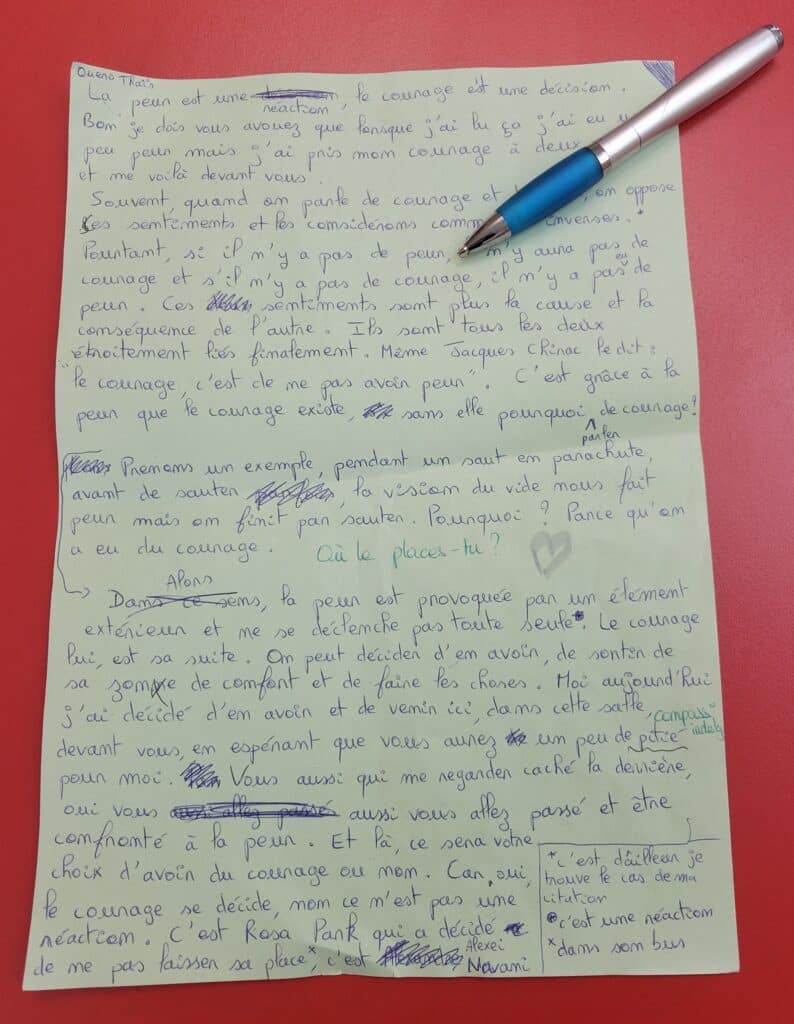 Queno Thaïs
La peur est une réaction, le courage est une décision.
Bon je dois vous avouez que lorsque j'ai lu ça j'ai eu u
peu peur mais j'ai pris mon courage à deux
et me voilà devant vous.
Souvent, quand on parle de courage et on oppose
Ces sentiments et les considérons comm inverses. *
Pourtant, si il n'y a pas de peur, n'y aura pas de
courage et s'il n'y a pas de courage, il n'y a pas eu de
peur. Ces sentiments sont plus la cause et la
conséquence de l'autre. Ils sont tous les deux
étroitement liés finalement. Même Jacques Chirac le dit :
"le courage, c'est de ne pas avoir peur". C'est grâce à la
peur que le courage existe, sans elle pourquoi parler de courage !
Prenons un exemple, pendant un saut en parachute,
avant de sauter, la vision du vide nous fait
peur mais on finit par sauter. Pourquoi ? Parce qu'on
a eu du courage. Où le places-tu ?
Alors
Dans ce sens, la peur est provoquée par un élement
extérieur et ne se déclenche pas toute seule. Le courage
lui, est sa suite. On peut décider d'en avoir, de sortir de
sa zone de comfort et de faire les choses. Moi aujourd'hui
j'ai décidé d'en avoir et de venir ici, dans cette salle,
devant vous, en espérant que vous aurez un peu de pitié
pour moi. Vous aussi qui me regarder caché la derrière,
oui vous aussi allez passé aussi vous allez passé et être
confronté à la peur. Et là, ce sera votre
choix d'avoir du courage ou non. Car, oui,
le courage se décide, non ce n'est pas une
réaction. C'est Rosa Park qui a décidé
de ne pas laisser sa place*, c'est Alexei Navani
*c'est d'âilleur je
trouve le cas de ma
citation
c'est une réaction
*dans son bus